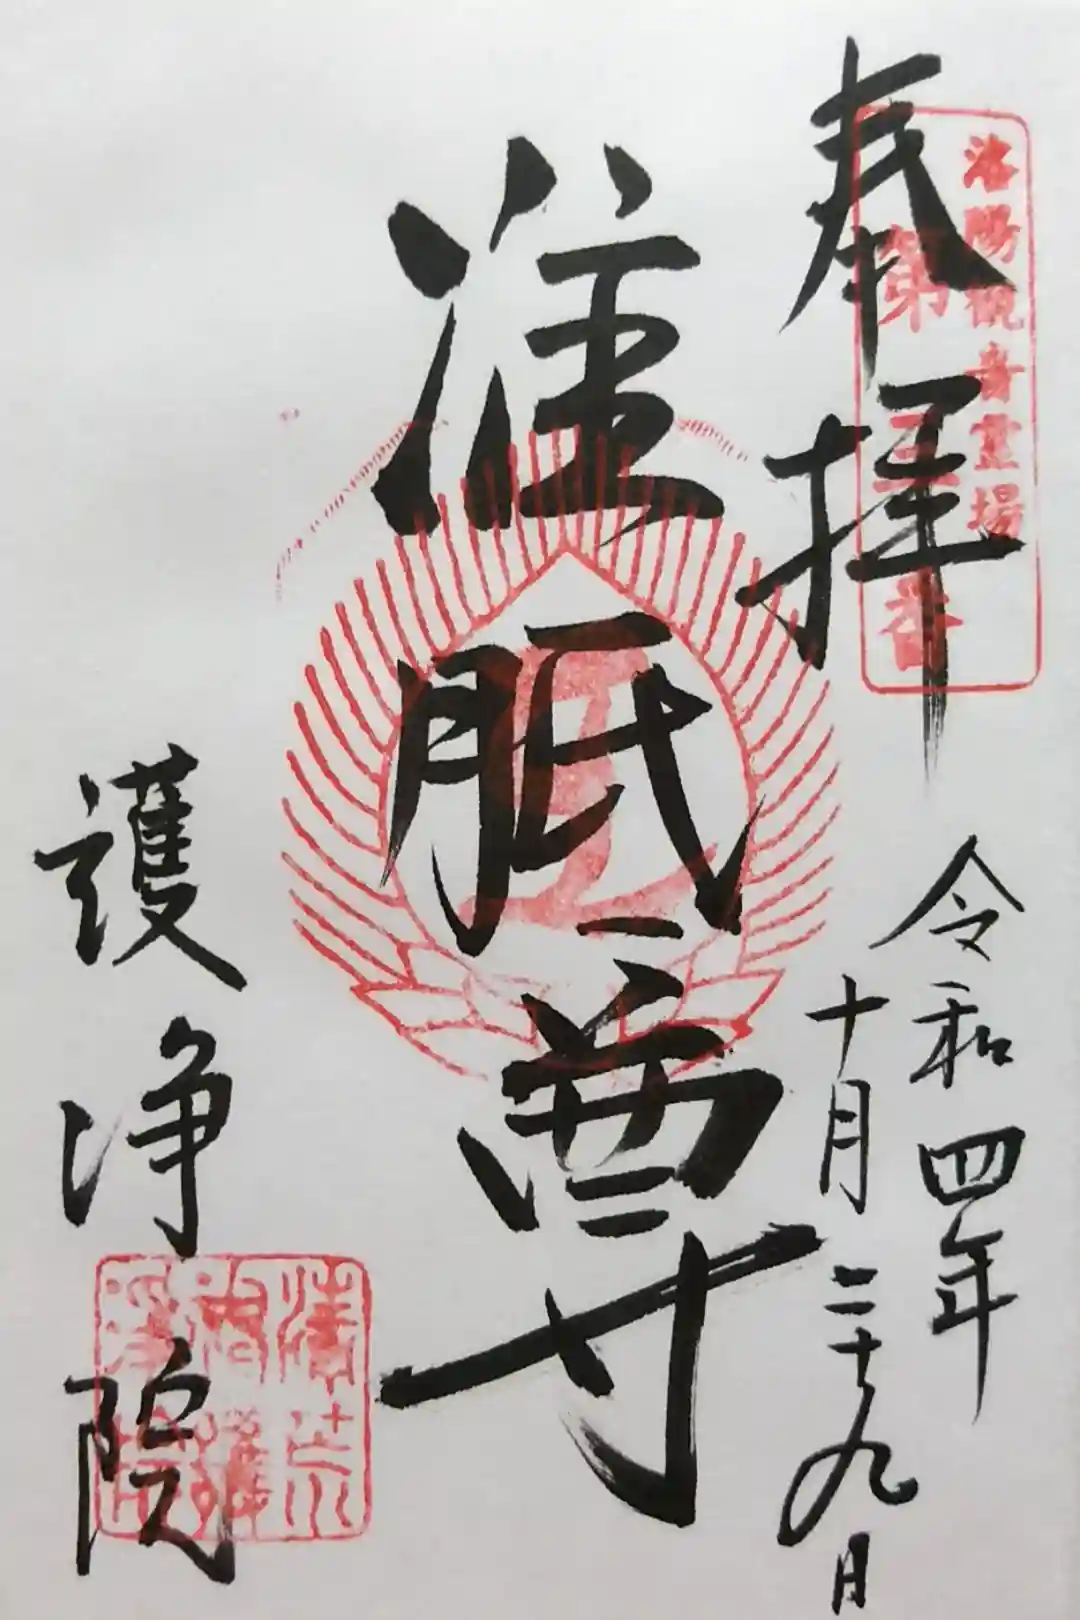 洛陽観音霊場
第三番
奉拝
令和四年
十月二十九日
准胝尊
護浄院
清荒
神護
浄院